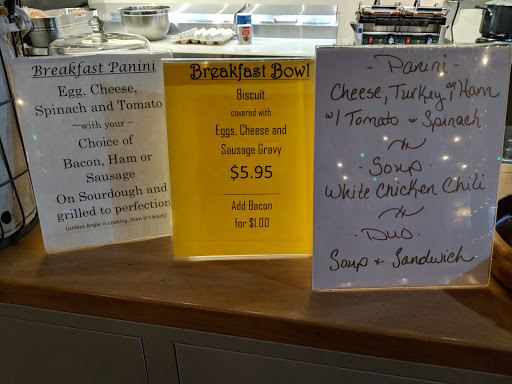 Breakfast Panini
Egg, Cheese,
Spinach and Tomato
~with your ~
Choice of
Bacon, Ham or
Sausage
On Sourdough and
grilled to perfection
(unless Angie is cooking, then it's black)
Breakfast Bowl
Biscuit
covered with
Eggs, Cheese and
Sausage Gravy
$5.95
Add Bacon
for $1.00
- Panini -
Cheese, Turkey or Ham
w/ Tomato + Spinach
- Soup -
White Chicken Chili
- Duo -
Soup + Sandwich